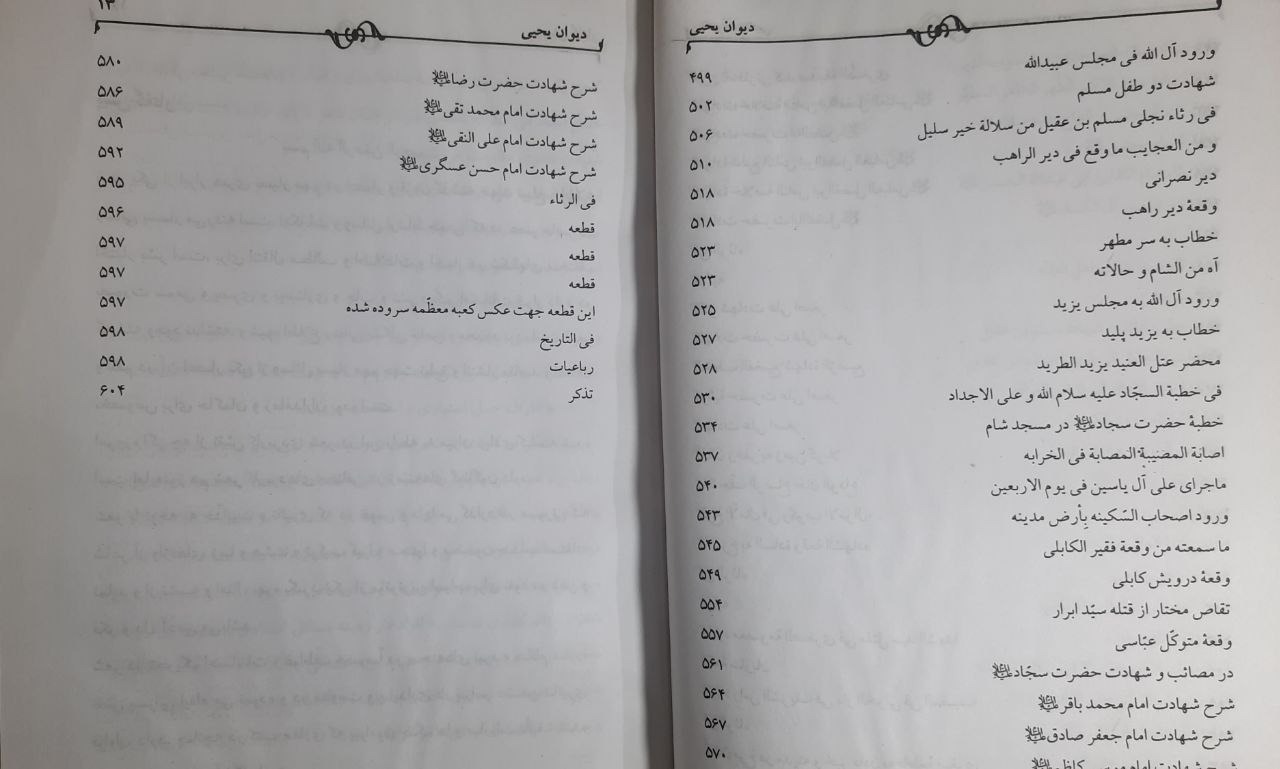 دیوان یحیی
ورود آل الله فی مجلس عبیدالله ۴۹۹
شهادت دو طفل مسلم ۵۰۲
فی رثاء نجلی مسلم بن عقیل من سلالة خیر سلیل ۵۰۶
و من العجایب ما وقع فی دیر الراهب ۵۱۰
دیر نصرانی ۵۱۸
وقعهٔ دیر راهب ۵۱۸
خطاب به سر مطهر ۵۲۳
آه من الشام و حالاته ۵۲۳
ورود آل الله به مجلس یزید ۵۲۵
خطاب به یزید پلید ۵۲۷
محضر عتل العنید یزید الطرید ۵۲۸
فی خطبة السجّاد علیه سلام الله و علی الاجداد ۵۳۰
خطبهٔ حضرت سجاد علیه‌السلام در مسجد شام ۵۳۴
اصابة المصیبة المصابة فی الخرابه ۵۳۷
ماجرای علی آل یاسین فی یوم الاربعین ۵۴۰
ورود اصحاب السّکینه بِأرض مدینه ۵۴۳
ما سمعته من وقعة فقیر الکابلی ۵۴۵
وقعهٔ درویش کابلی ۵۴۹
تقاص مختار از قتله سیّد ابرار ۵۵۴
وقعهٔ متوکّل عبّاسی ۵۵۷
در مصائب و شهادت حضرت سجّاد علیه‌السلام ۵۶۱
شرح شهادت امام محمد باقر علیه‌السلام ۵۶۴
شرح شهادت امام جعفر صادق علیه‌السلام ۵۶۷
شرح شهادت امام موسی کاظم ۵۷۰
دیوان یحیی ۱۳
شرح شهادت حضرت رضا علیه‌السلام ۵۸۰
شرح شهادت امام محمد تقی علیه‌السلام ۵۸۶
شرح شهادت امام علی النقی علیه‌السلام ۵۸۹
شرح شهادت امام حسن عسگری علیه‌السلام ۵۹۲
فی الرثاء ۵۹۵
قطعه ۵۹۶
قطعه ۵۹۷
قطعه ۵۹۷
این قطعه جهت عکس کعبه معظّمه سروده شده ۵۹۷
فی التاریخ ۵۹۸
رباعیات ۵۹۸
تذکر ۶۰۴